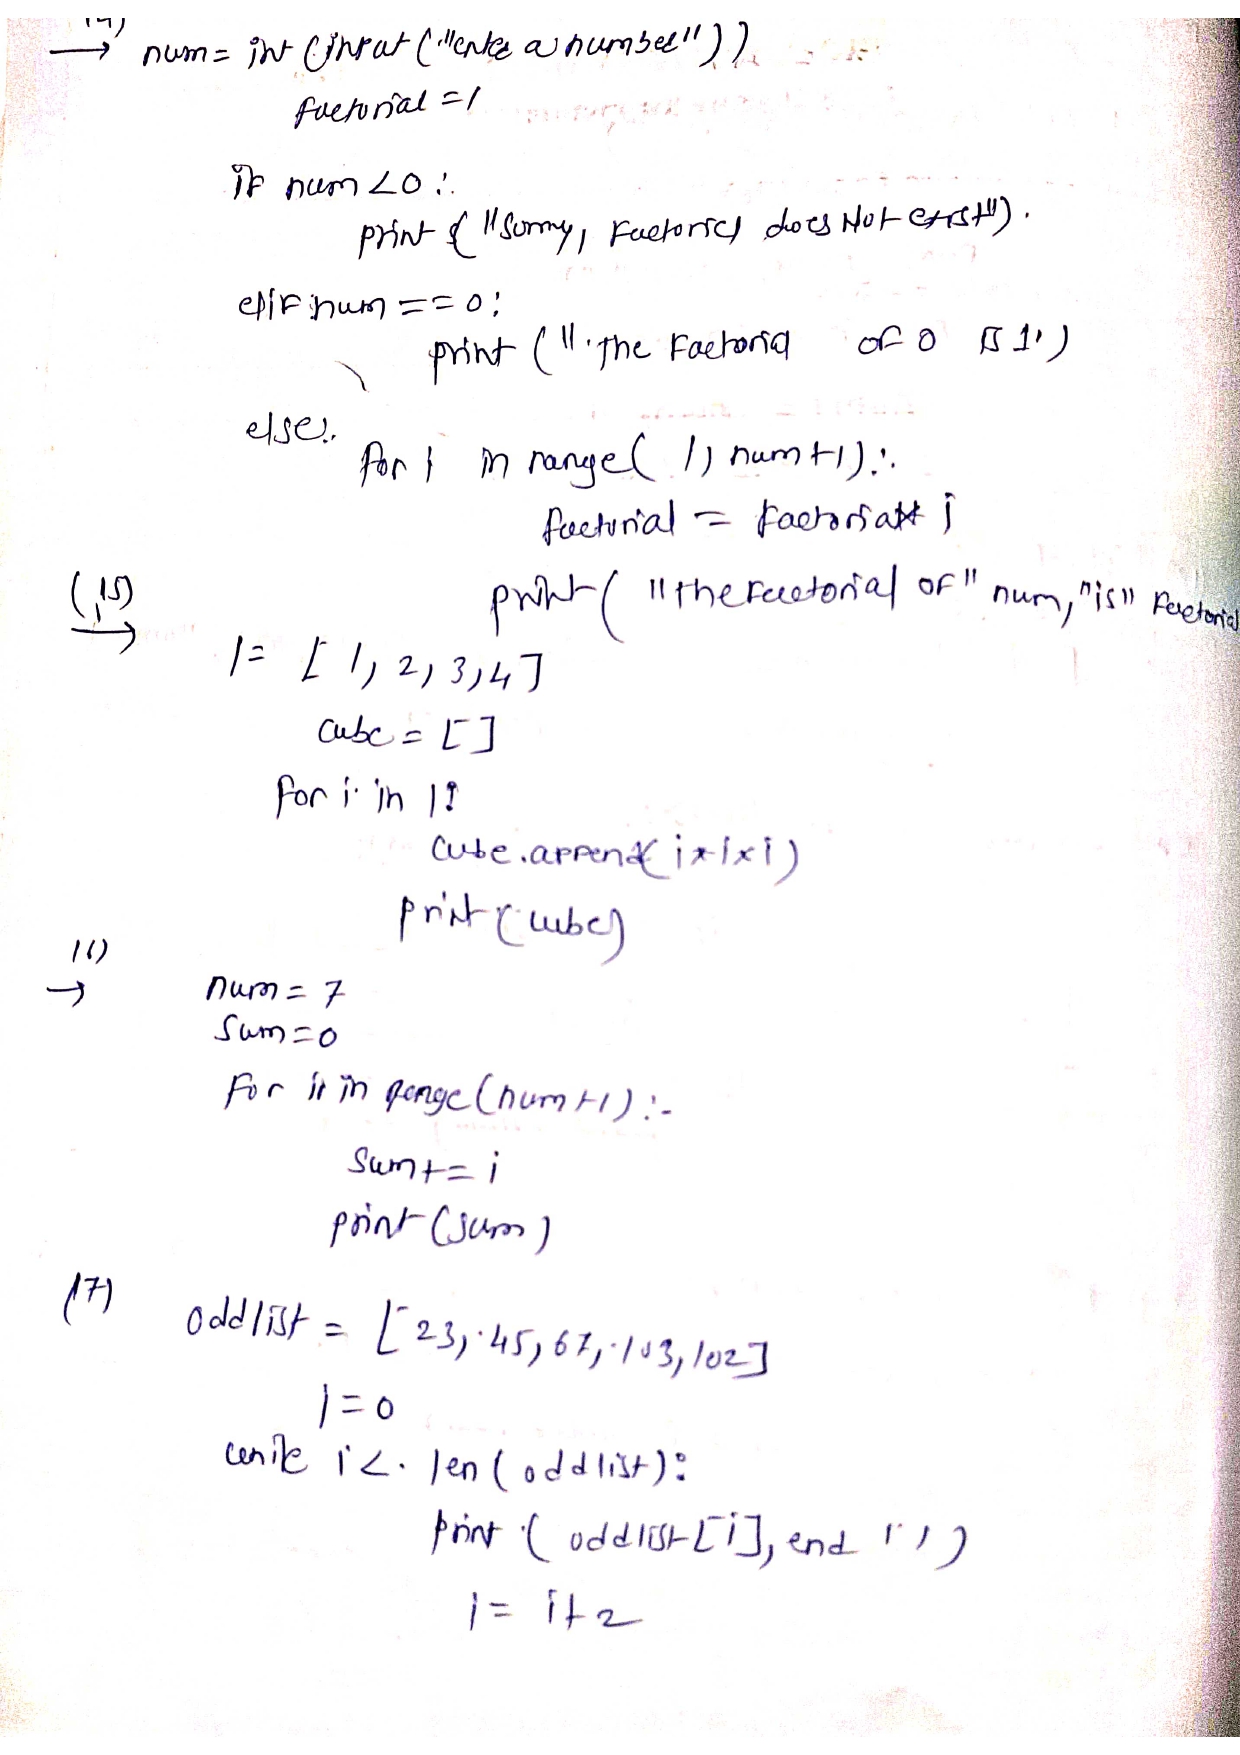 14)
→ num = int (input ("enter a number"))
factorial = 1
if num < 0 :
print ("Sorry, Factorial does Not exist").
elif num == 0:
print ("The Factorial of 0 is 1')
else:
for i in range( 1, num+1):
factorial = factorial* i
(15)
→
print( "The Factorial of" num, "is" Factorial
l = [ 1, 2, 3, 4 ]
cube = [ ]
for i in l:
cube.append( i*i*i )
print (cube)
16)
→ num = 7
Sum = 0
For i in range (num+1) :-
Sum += i
print (sum)
(17) oddlist = [ 23, 45, 67, 103, 102 ]
i = 0
while i < len ( oddlist) :
print ( oddlist [i], end ' ' )
i = i+2